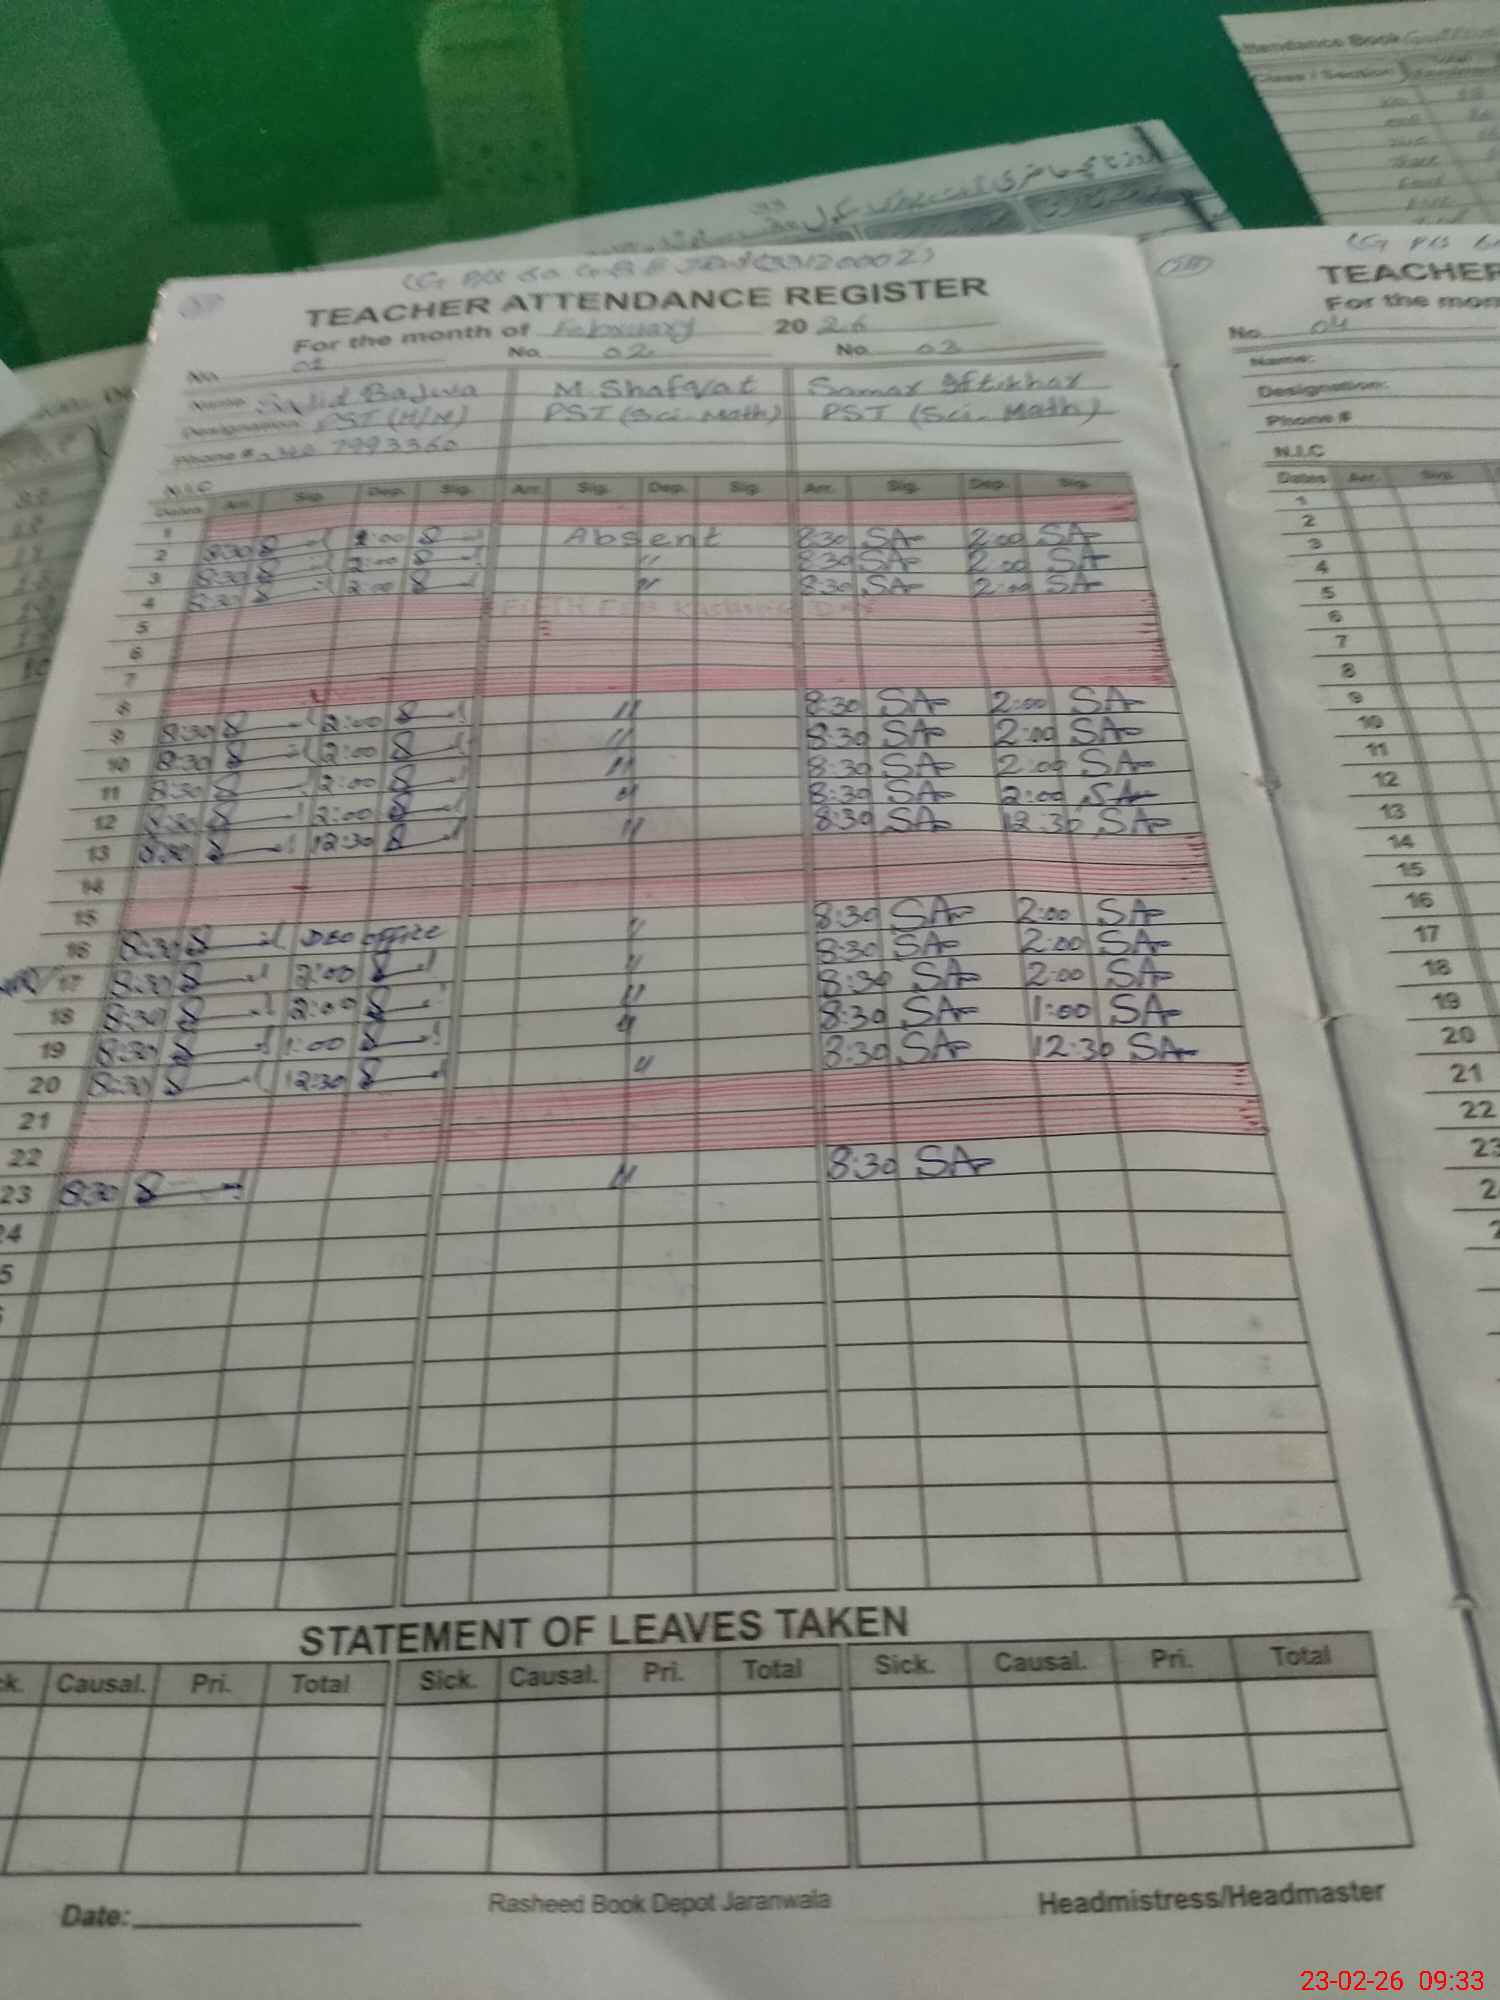 TEACHER ATTENDANCE REGISTER
For the month of February 2026
No. 01 No. 02 No. 03
Name: Sajid Bajwa M. Shafqat Samar Iftikhar
Designation: PST (H/M) PST (Sci. Math) PST (Sci. Math)
Phone # 7993360
N.I.C
Dates Arr. Sig. Dep. Sig. Arr. Sig. Dep. Sig. Arr. Sig. Dep. Sig.
1
2 8:30 S 2:00 S Absent 8:30 SA 2:00 SA
3 8:30 S 2:00 S " 8:30 SA 2:00 SA
4 8:30 S 2:00 S " 8:30 SA 2:00 SA
5 FIFTH FEB Kashmir Day
6 =
7
8
9 8:30 S 2:00 S " 8:30 SA 2:00 SA
10 8:30 S 2:00 S " 8:30 SA 2:00 SA
11 8:30 S 2:00 S " 8:30 SA 2:00 SA
12 8:30 S 2:00 S " 8:30 SA 2:00 SA
13 8:30 S 12:30 S " 8:30 SA 12:30 SA
14
15
16 8:30 S DEO office " 8:30 SA 2:00 SA
17 8:30 S 2:00 S " 8:30 SA 2:00 SA
18 8:30 S 2:00 S " 8:30 SA 2:00 SA
19 8:30 S 1:00 S " 8:30 SA 1:00 SA
20 8:30 S 12:30 S " 8:30 SA 12:30 SA
21
22
23 8:30 S " 8:30 SA
24
5
STATEMENT OF LEAVES TAKEN
ck. Causal. Pri. Total Sick. Causal. Pri. Total Sick. Causal. Pri. Total
Date:
Rasheed Book Depot Jaranwala
Headmistress/Headmaster
TEACHER
For the mon
No. 04
Name:
Designation:
Phone #
N.I.C
Dates Arr. Sig.
1
2
3
4
5
6
7
8
9
10
11
12
13
14
15
16
17
18
19
20
21
22
23
2
2
ttendance Book
Class / Section
23-02-26 09:33